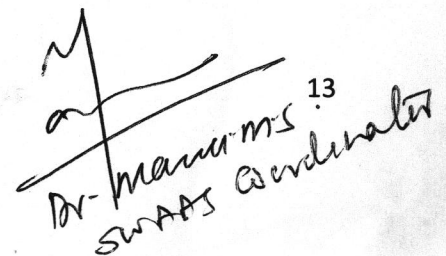 13
Dr- Manu.M.S
SWAAS Coordinator